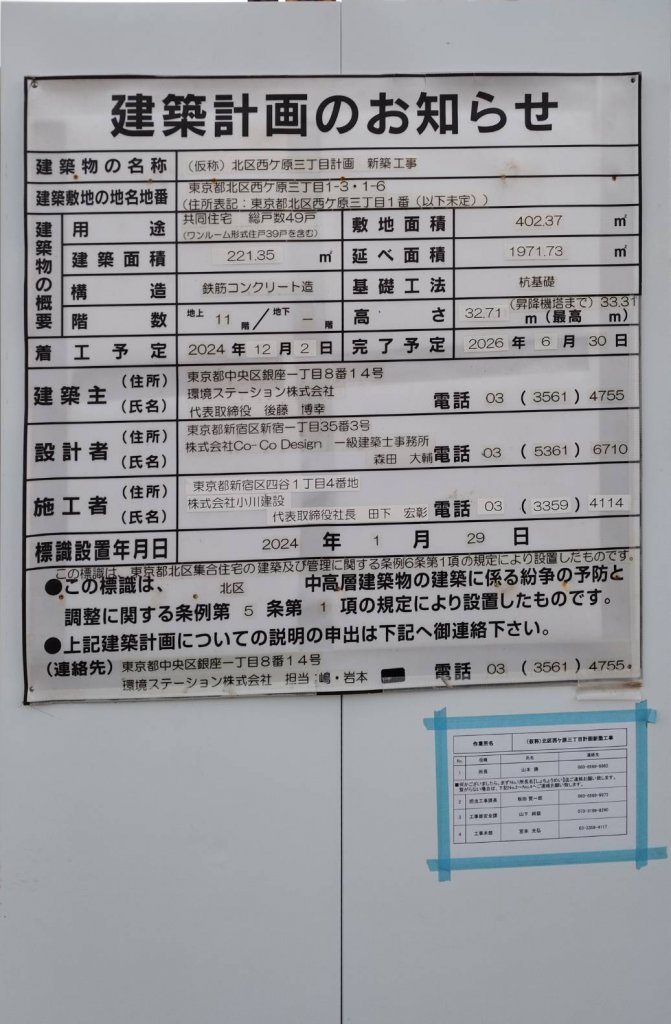 建築計画のお知らせ
建築物の名称 (仮称)北区西ケ原三丁目計画 新築工事
建築敷地の地名地番 東京都北区西ケ原三丁目1-3・1-6
(住所表記:東京都北区西ケ原三丁目1番(以下未定))
建築物の概要
用途 共同住宅 総戸数49戸
(ワンルーム形式住戸39戸を含む)
敷地面積 402.37 ㎡
建築面積 221.35 ㎡ 延べ面積 1971.73 ㎡
構造 鉄筋コンクリート造 基礎工法 杭基礎
階数 地上 11 階/地下 - 階 高さ 32.71 m (最高 m)
(昇降機塔まで) 33.31
着工予定 2024年12月2日 完了予定 2026年6月30日
建築主 (住所) 東京都中央区銀座一丁目8番14号
環境ステーション株式会社
(氏名) 代表取締役 後藤 博幸 電話 03 (3561) 4755
設計者 (住所) 東京都新宿区新宿一丁目35番3号
株式会社Co-Co Design 一級建築士事務所
(氏名) 森田 大輔 電話 03 (5361) 6710
施工者 (住所) 東京都新宿区四谷1丁目4番地
株式会社小川建設
(氏名) 代表取締役社長 田下 宏彰 電話 03 (3359) 4114
標識設置年月日 2024年1月29日
この標識は、東京都北区集合住宅の建築及び管理に関する条例6条第1項の規定により設置したものです。
●この標識は、 北区 中高層建築物の建築に係る紛争の予防と
調整に関する条例第5条第1項の規定により設置したものです。
●上記建築計画についての説明の申出は下記へ御連絡下さい。
(連絡先) 東京都中央区銀座一丁目8番14号
環境ステーション株式会社 担当:嶋・岩本 電話 03 (3561) 4755
作業所名 (仮称)北区西ケ原三丁目計画新築工事
No. 役職 氏名 連絡先
1 所長 山本
2 担当工事課長
3 工事部安全課 山下
4 工事本部 03-3359-4117